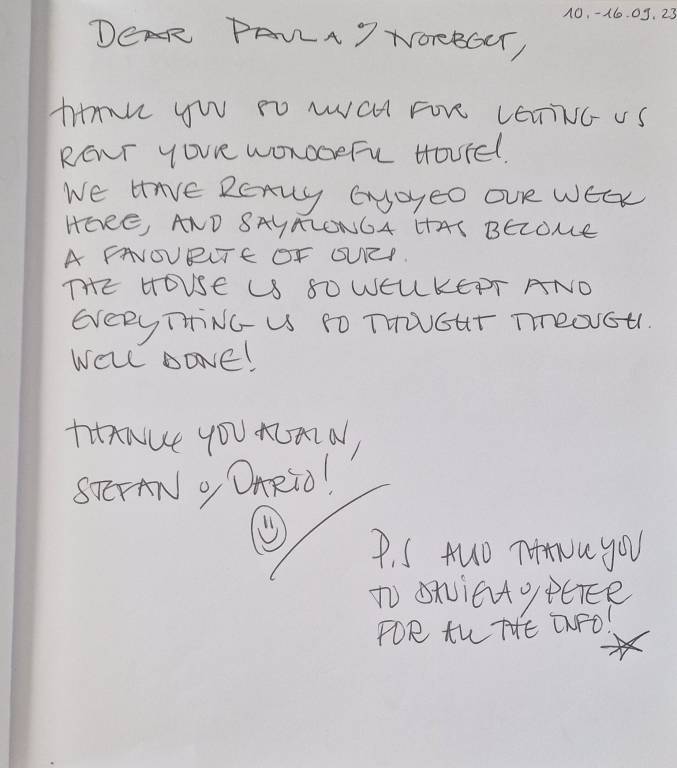 10.-16.09.23
DEAR PAULA & NORBERT,
THANK YOU SO MUCH FOR LETTING US
RENT YOUR WONDERFUL HOUSE!
WE HAVE REALLY ENJOYED OUR WEEK
HERE, AND SAYALONGA HAS BECOME
A FAVOURITE OF OURS.
THE HOUSE IS SO WELL KEPT AND
EVERYTHING IS SO THOUGHT THROUGH.
WELL DONE!
THANK YOU AGAIN,
STEFAN & DARIO!
P.S ALSO THANK YOU
TO DANIELA & PETER
FOR ALL THE INFO!